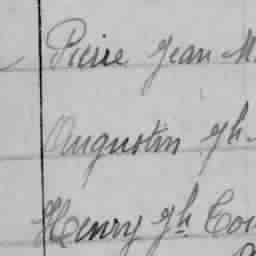 Pierre Jean M
Augustin Jh
Henry Jh Cou